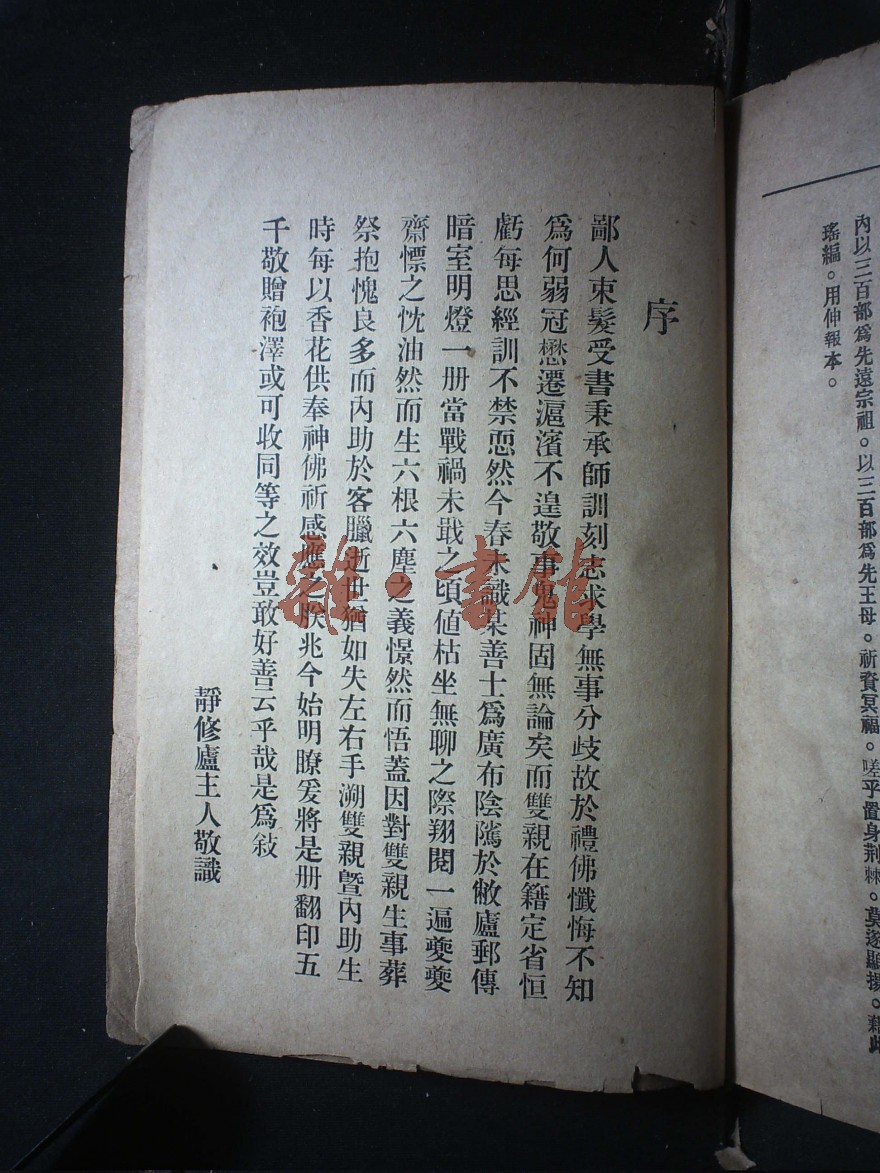 內以三百部爲先遠宗祖。以三百部爲先王母。祈資冥福。嗟乎置身荆棘。莫遂顯揚。藉此
瑤編。用伸報本。
序
鄙人束髮受書秉承師訓刻志求學無事分歧故於禮佛懺悔不知
爲何弱冠懋遷滬濱不遑敬事鬼神固無論矣而雙親在籍定省恒
虧每思經訓不禁恧然今春未識某善士爲廣布陰隲於敝廬郵傳
暗室明燈一册當戰禍未戢之頃値枯坐無聊之際翔閱一遍夔夔
齋慄之忱油然而生六根六塵之義憬然而悟蓋因對雙親生事葬
祭抱愧良多而內助於客臘逝世猶如失左右手溯雙親曁內助生
時每以香花供奉神佛祈感應之朕兆今始明瞭爰將是册翻印五
千敬贈袍澤或可收同等之效豈敢好善云乎哉是爲敍
靜修廬主人敬識
雜·書館